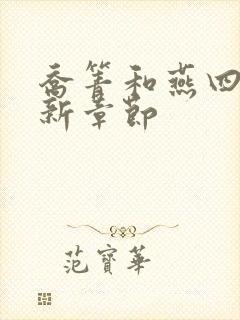 喬箐和燕四
新章節
范寶華